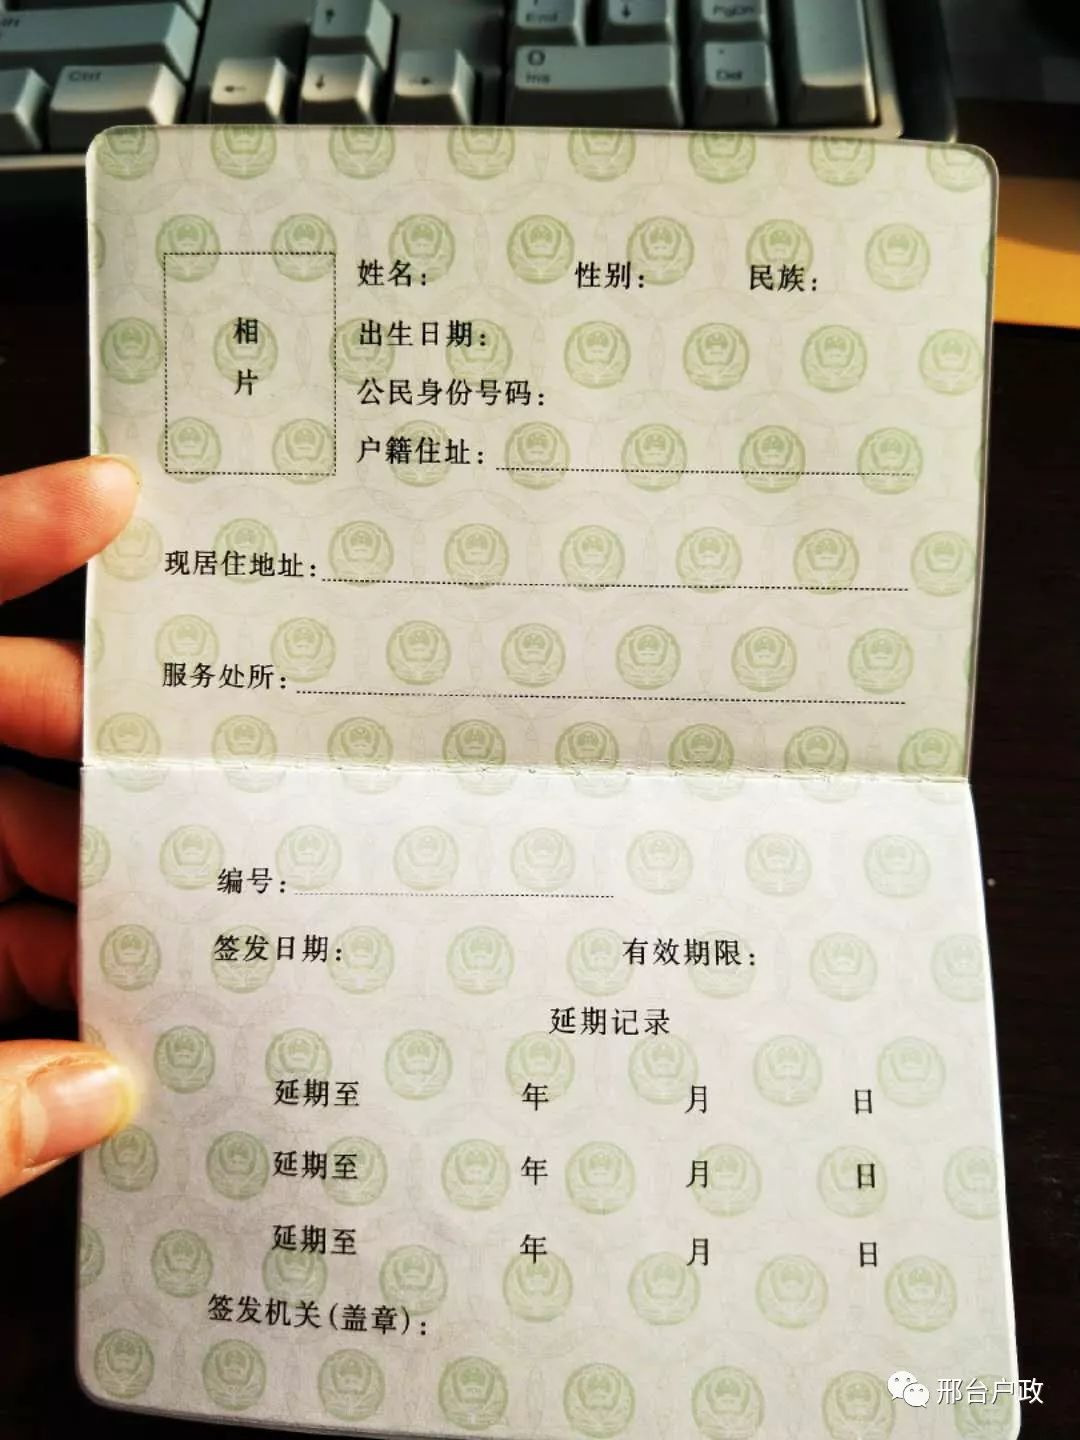 Ctrl
↑
←
↓
→
End
↓
PgDn
0
Ins
Del
姓名： 性别： 民族：
相片
出生日期：
公民身份号码：
户籍住址：
现居住地址：
服务处所：
编号：
签发日期： 有效期限：
延期记录
延期至 年 月 日
延期至 年 月 日
延期至 年 月 日
签发机关(盖章)：
邢台户政